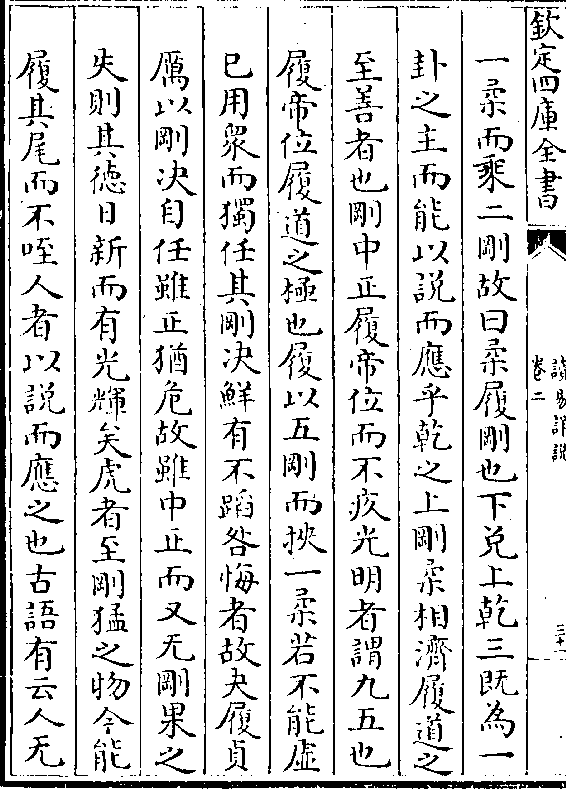 欽定四庫全書
讀易詳說
卷二
三十一
一柔而乘二剛故曰柔履剛也下兌上乾三既為一
卦之主而能以說而應乎乾之上剛柔相濟履道之
至善者也剛中正履帝位而不疚光明者謂九五也
履帝位履道之極也履以五剛而挾一柔若不能虛
已用衆而獨任其剛決鮮有不蹈咎悔者故夬履貞
厲以剛決自任雖正猶危故雖中正而又无剛果之
失則其德日新而有光輝矣虎者至剛猛之物今能
履其尾而不咥人者以說而應之也古語有云人无